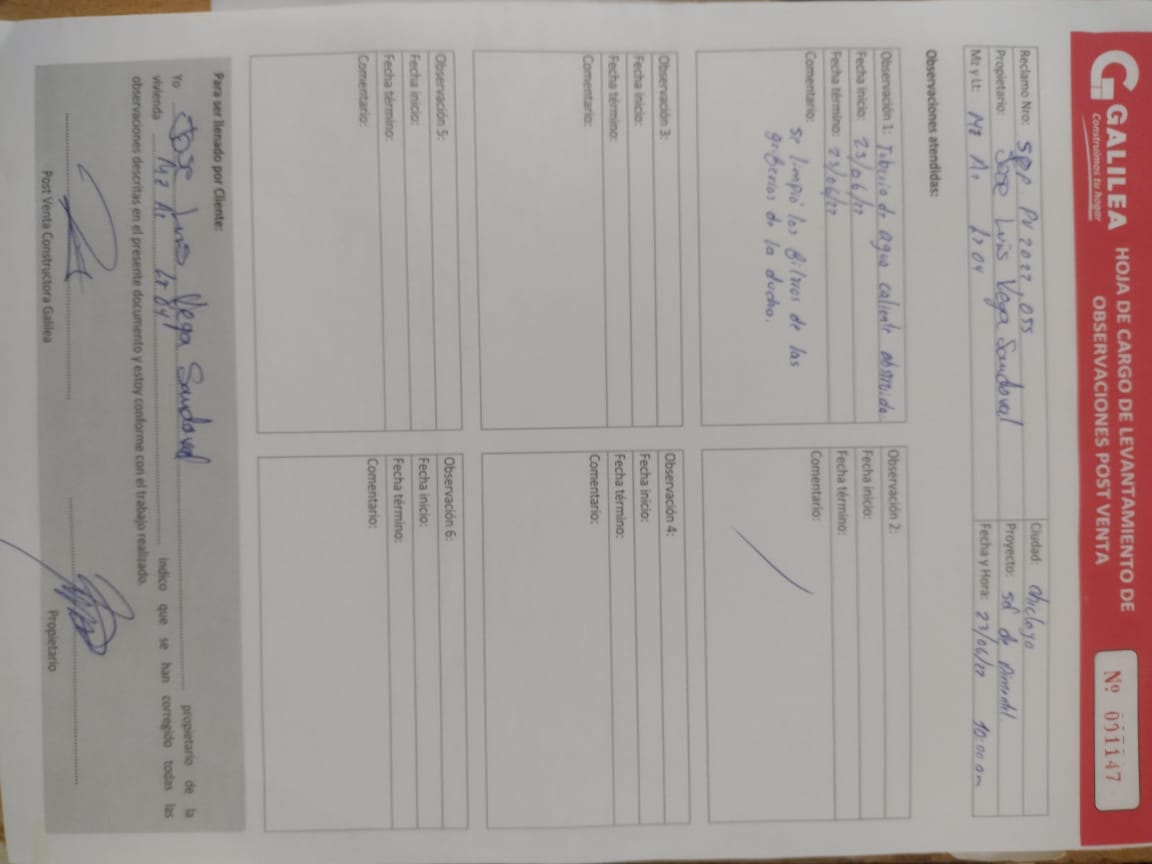 GALILEA
Construimos tu hogar
HOJA DE CARGO DE LEVANTAMIENTO DE
OBSERVACIONES POST VENTA
Nº 001147
Reclamo Nro: SPP PV 2022,055
Ciudad: chiclayo
Propietario: Jose Luis Vega Sandoval
Proyecto: sd de Pimentel
Mz y Lt: Mz A1 Lt 04
Fecha y Hora: 23/06/22 10:00 am
Observaciones atendidas:
Observación 1: Tuberia de agua caliente obstruida.
Fecha inicio: 23/06/22
Fecha término: 23/06/22
Comentario:
se limpió los filtros de las
griferias de la ducha.
Observación 2:
Fecha inicio:
Fecha término:
Comentario:
Observación 3:
Fecha inicio:
Fecha término:
Comentario:
Observación 4:
Fecha inicio:
Fecha término:
Comentario:
Observación 5:
Fecha inicio:
Fecha término:
Comentario:
Observación 6:
Fecha inicio:
Fecha término:
Comentario:
Para ser llenado por Cliente:
Yo Jose Luis Vega Sandoval propietario de la
vivienda Mz A1 Lt 04 indico que se han corregido todas las
observaciones descritas en el presente documento y estoy conforme con el trabajo realizado.
Post Venta Constructora Galilea
Propietario